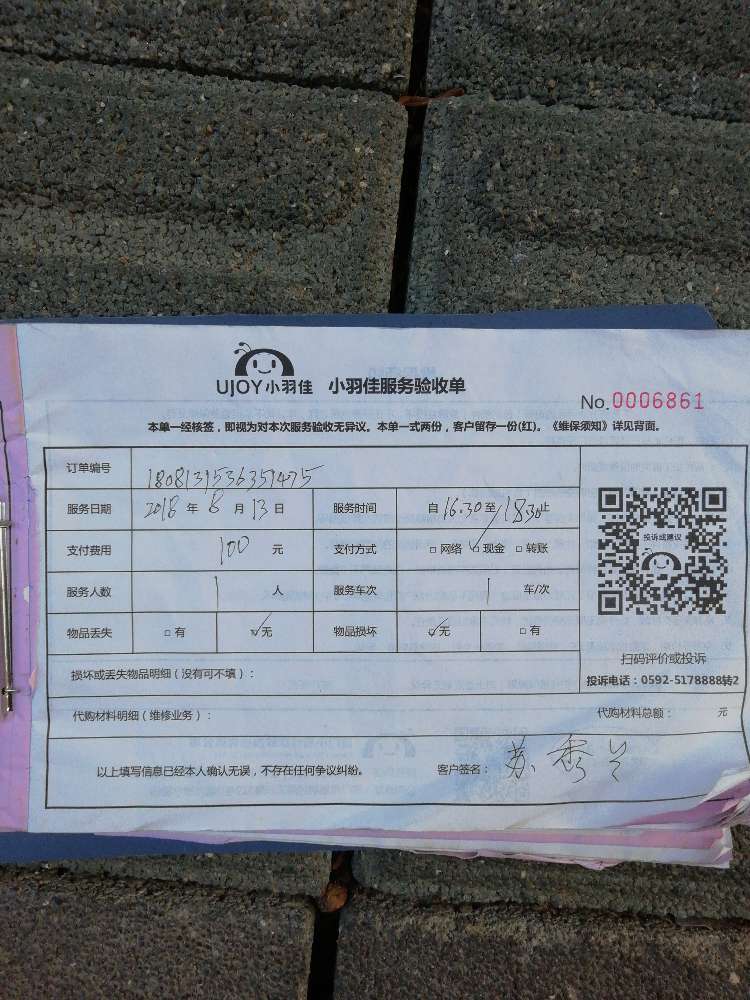 UJOY小羽佳 小羽佳服务验收单
No.0006861
本单一经核签，即视为对本次服务验收无异议。本单一式两份，客户留存一份(红)。《维保须知》详见背面。
订单编号 1808131536351475
服务日期 2018年8月13日 服务时间 自16:30至18:30止
支付费用 100元 支付方式 □网络 ☑现金 □转账
服务人数 1人 服务车次 1车/次
物品丢失 □有 ☑无 物品损坏 ☑无 □有
投诉或建议
扫码评价或投诉
投诉电话：0592-5178888转2
损坏或丢失物品明细（没有可不填）：
代购材料明细（维修业务）： 代购材料总额： 元
以上填写信息已经本人确认无误，不存在任何争议纠纷。 客户签名：苏秀兰